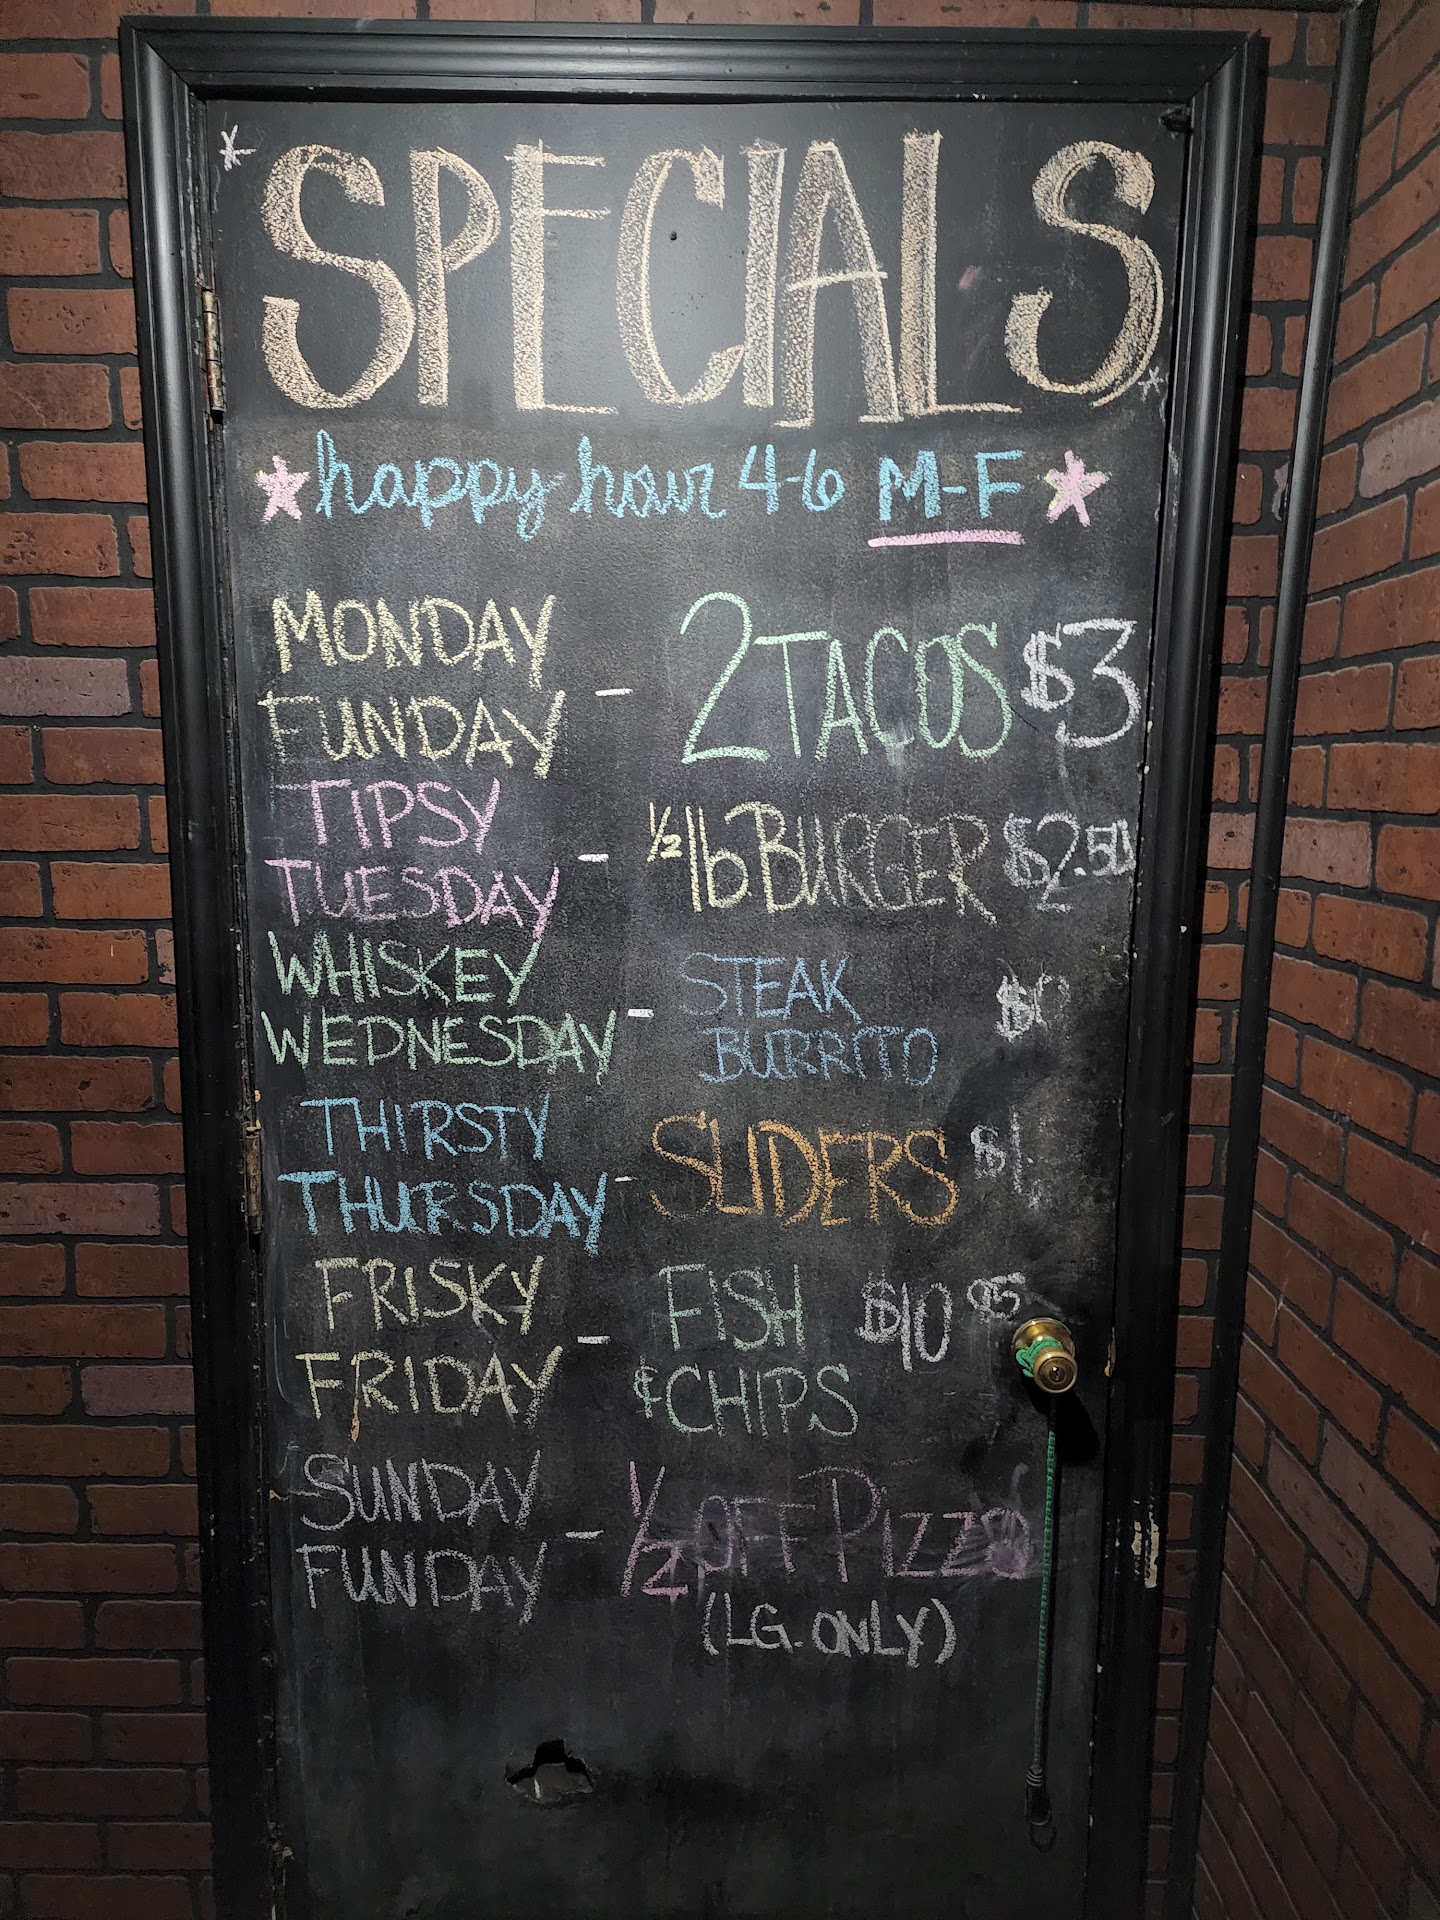 SPECIALS
happy hour 4-6 M-F
MONDAY FUNDAY - 2 TACOS $3
TIPSY TUESDAY - 1/2 lb BURGER $2.50
WHISKEY WEDNESDAY - STEAK BURRITO
THIRSTY THURSDAY - SLIDERS $1
FRISKY FRIDAY - FISH & CHIPS $10 $5
SUNDAY FUNDAY - 1/2 OFF PIZZA
(LG. ONLY)